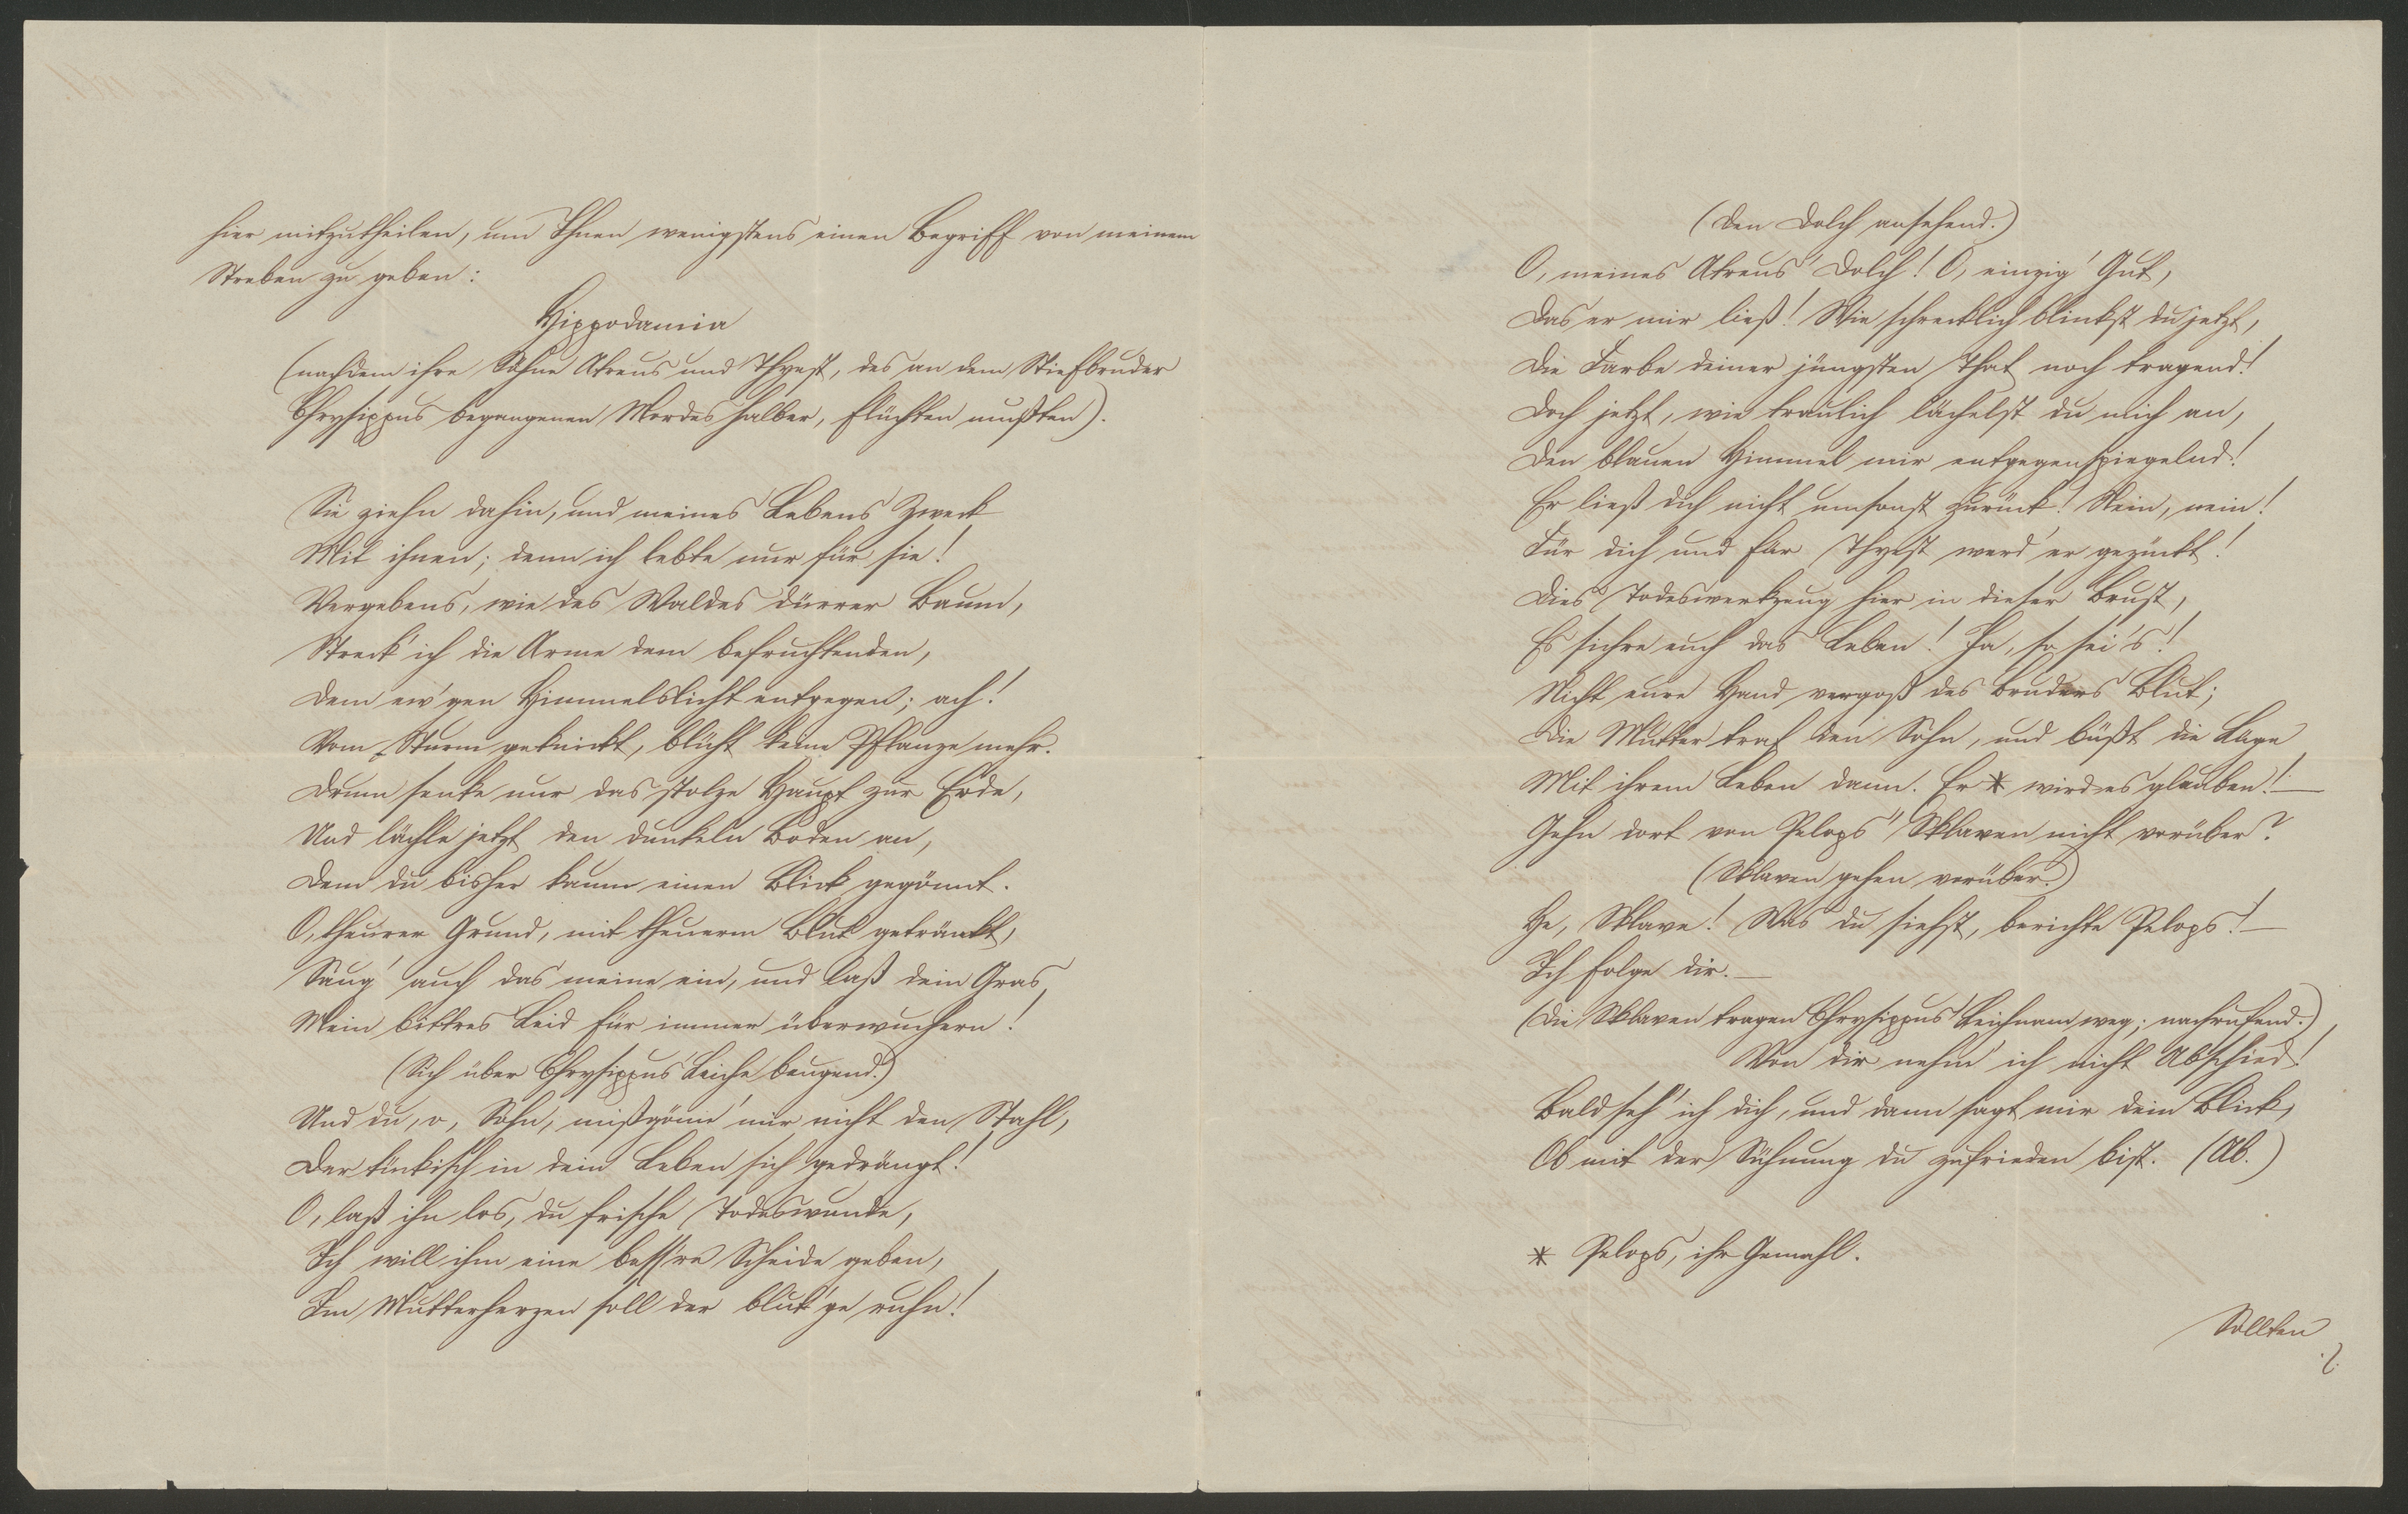 hier mitzutheilen, um Ihnen wenigstens einen Begriff von meinem
Streben zu geben:
Hippodamia
(nachdem ihre Söhne Atreus und Thyest, des an dem Stiefbruder
Chrysippus begangenen Mordes halber, flüchten mußten).
Sie ziehn dahin, und meines Lebens Zweck
Mit ihnen; denn ich lebte nur für sie!
Vergebens, wie des Waldes dürrer Baum,
Streck' ich die Arme dem befruchtenden,
Dem ew'gen Himmelslicht entgegen; ach!
Vom Sturm geknickt, blüht keine Pflanze mehr.
Drum senke nur das stolze Haupt zur Erde,
Und lächle jetzt den dunkeln Boden an,
Dem du bisher kaum einen Blick gegönnt.
O, theurer Grund, mit theuerm Blut getränkt,
Saug' auch das meine ein, und laß dein Gras
Mein bittres Leid für immer überwuchern!
(Sich über Chrysippus' Leiche beugend.)
Und du, o, Sohn, mißgönn' mir nicht den Stahl,
Der tückisch in dein Leben sich gedrängt!
O, laß ihn los, du frische Todeswunde,
Ich will ihm eine bess're Scheide geben,
Im Mutterherzen soll der blut'ge ruhn!
(Den Dolch ansehend.)
O, meines Atreus' Dolch! O, einzig' Gut,
Das er mir ließ! Wie schrecklich blinkst du jetzt,
Die Farbe deiner jüngsten That noch tragend!
Doch jetzt, wie traulich lächelst du mich an,
Den blauen Himmel mir entgegenspiegelnd!
Er ließ dich nicht umsonst zurück! Nein, nein!
Für dich und für Thyest werd' er gezückt!
Dies Todeswerkzeug hier in dieser Brust,
Es sichre euch das Leben! Ja, so sei's!
Nicht eure Hand vergoß des Bruders Blut;
Die Mutter traf den Sohn, und büßt die Lüge
Mit ihrem Leben dann. Er * wird es glauben! —
Gehn dort von Pelops' Sklaven nicht vorüber?
(Sklaven gehen vorüber.)
He, Sklave! Was du siehst, berichte Pelops! —
Ich folge dir. —
(Die Sklaven tragen Chrysippus' Leichnam weg; nachrufend.)
Von dir nehm' ich nicht Abschied!
Bald seh' ich dich, und dann sagt mir dein Blick,
Ob mit der Sühnung du zufrieden bist. (Ab.)
* Pelops, ihr Gemahl.
Sollten
./.